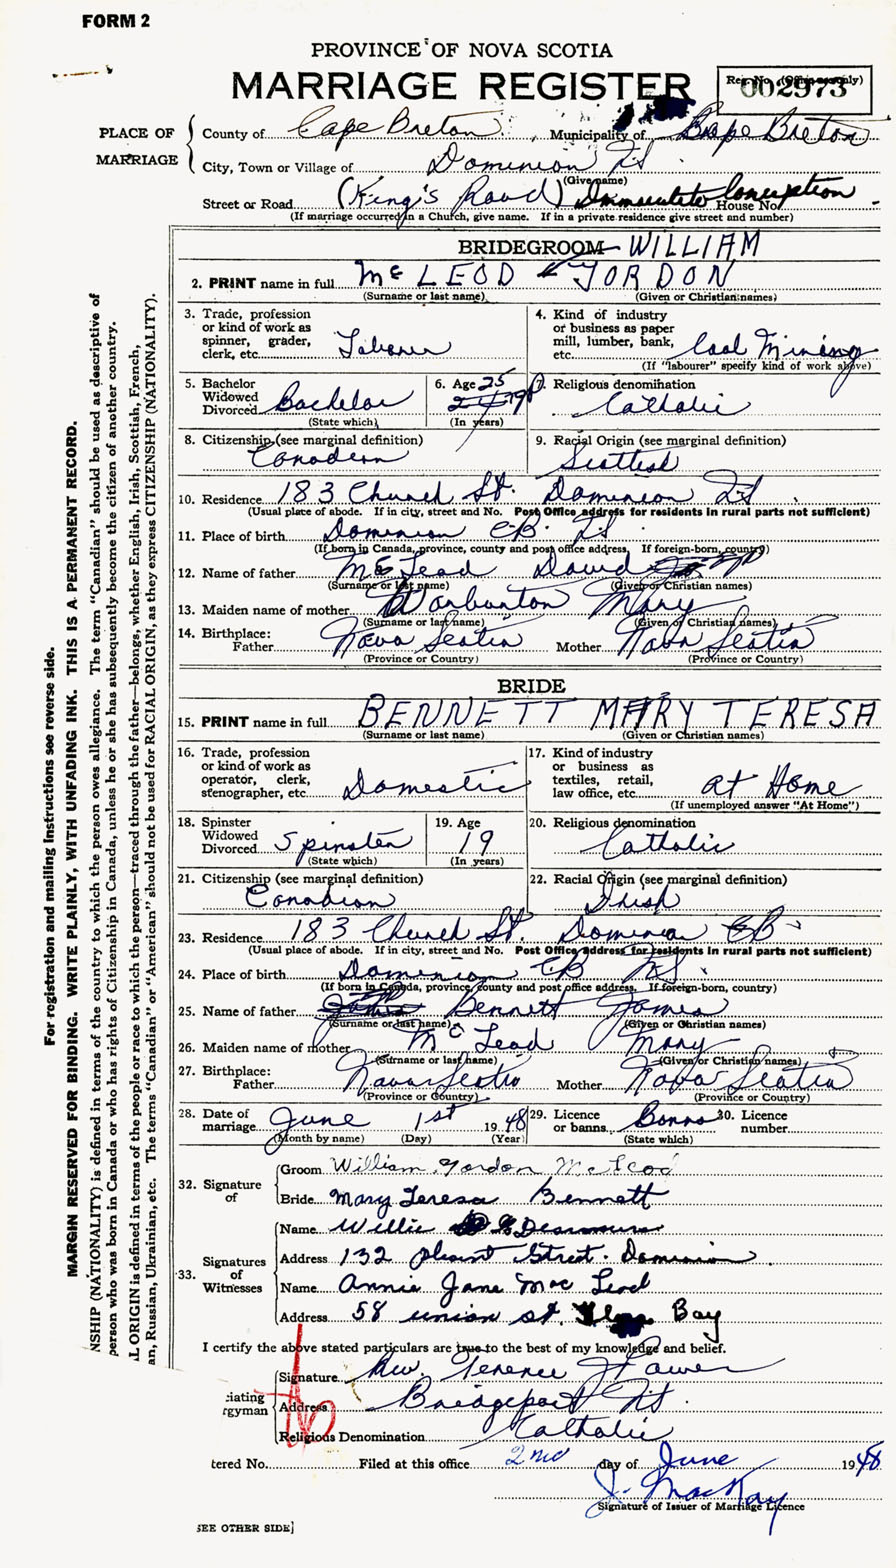 FORM 2
PROVINCE OF NOVA SCOTIA
MARRIAGE REGISTER
Reg. No. (Office use only)
002973
PLACE OF MARRIAGE
County of Cape Breton, Municipality of Cape Breton
City, Town or Village of Dominion NS.
(Give name)
Street or Road (King's Road) Immaculate Conception House No. -
(If marriage occurred in a Church, give name. If in a private residence give street and number)
BRIDEGROOM WILLIAM
2. PRINT name in full McLEOD GORDON
(Surname or last name) (Given or Christian names)
3. Trade, profession or kind of work as spinner, grader, clerk, etc. Laborer
4. Kind of industry or business as paper mill, lumber, bank, etc. Coal Mining
(If "labourer" specify kind of work above)
5. Bachelor Widowed Divorced Bachelor
(State which)
6. Age 25
(In years)
7. Religious denomination
Catholic
8. Citizenship (see marginal definition)
Canadian
9. Racial Origin (see marginal definition)
Scottish
10. Residence 183 Church St. Dominion NS.
(Usual place of abode. If in city, street and No. Post Office address for residents in rural parts not sufficient)
11. Place of birth Dominion C.B. NS.
(If born in Canada, province, county and post office address. If foreign-born, country)
12. Name of father McLeod David
(Surname or last name) (Given or Christian names)
13. Maiden name of mother Warburton Mary
(Surname or last name) (Given or Christian names)
14. Birthplace: Father Nova Scotia Mother Nova Scotia
(Province or Country) (Province or Country)
BRIDE
15. PRINT name in full BENNETT MARY TERESA
(Surname or last name) (Given or Christian names)
16. Trade, profession or kind of work as operator, clerk, stenographer, etc. Domestic
17. Kind of industry or business as textiles, retail, law office, etc. at Home
(If unemployed answer "At Home")
18. Spinster Widowed Divorced Spinster
(State which)
19. Age 19
(In years)
20. Religious denomination
Catholic
21. Citizenship (see marginal definition)
Canadian
22. Racial Origin (see marginal definition)
Irish
23. Residence 183 Church St. Dominion CB
(Usual place of abode. If in city, street and No. Post Office address for residents in rural parts not sufficient)
24. Place of birth Dominion CB NS.
(If born in Canada, province, county and post office address. If foreign-born, country)
25. Name of father Bennett James
(Surname or last name) (Given or Christian names)
26. Maiden name of mother McLeod Mary
(Surname or last name) (Given or Christian names)
27. Birthplace: Father Nova Scotia Mother Nova Scotia
(Province or Country) (Province or Country)
28. Date of marriage June 1st 1948
(Month by name) (Day) (Year)
29. Licence or banns Banns
(State which)
30. Licence number
32. Signature of
Groom William Gordon McLeod
Bride Mary Teresa Bennett
33. Signatures of Witnesses
Name Willie
Address 132 Plesent Street. Dominion
Name Annie Jane MacLeod
Address 58 union st. Bay
I certify the above stated particulars are true to the best of my knowledge and belief.
Signature Rev. Terence Power
iating
rgyman
Address Bridgeport NS.
Religious Denomination Catholic
tered No. Filed at this office 2nd day of June 1948
J. MacKay
Signature of Issuer of Marriage Licence
SEE OTHER SIDE]
For registration and mailing instructions see reverse side.
MARGIN RESERVED FOR BINDING. WRITE PLAINLY, WITH UNFADING INK. THIS IS A PERMANENT RECORD.
NSHIP (NATIONALITY) is defined in terms of the country to which the person owes allegiance. The term "Canadian" should be used as descriptive of
person who was born in Canada or who has rights of Citizenship in Canada, unless he or she has subsequently become the citizen of another country.
L ORIGIN is defined in terms of the people or race to which the person—traced through the father—belongs, whether English, Irish, Scottish, French,
an, Russian, Ukrainian, etc. The terms "Canadian" or "American" should not be used for RACIAL ORIGIN, as they express CITIZENSHIP (NATIONALITY).